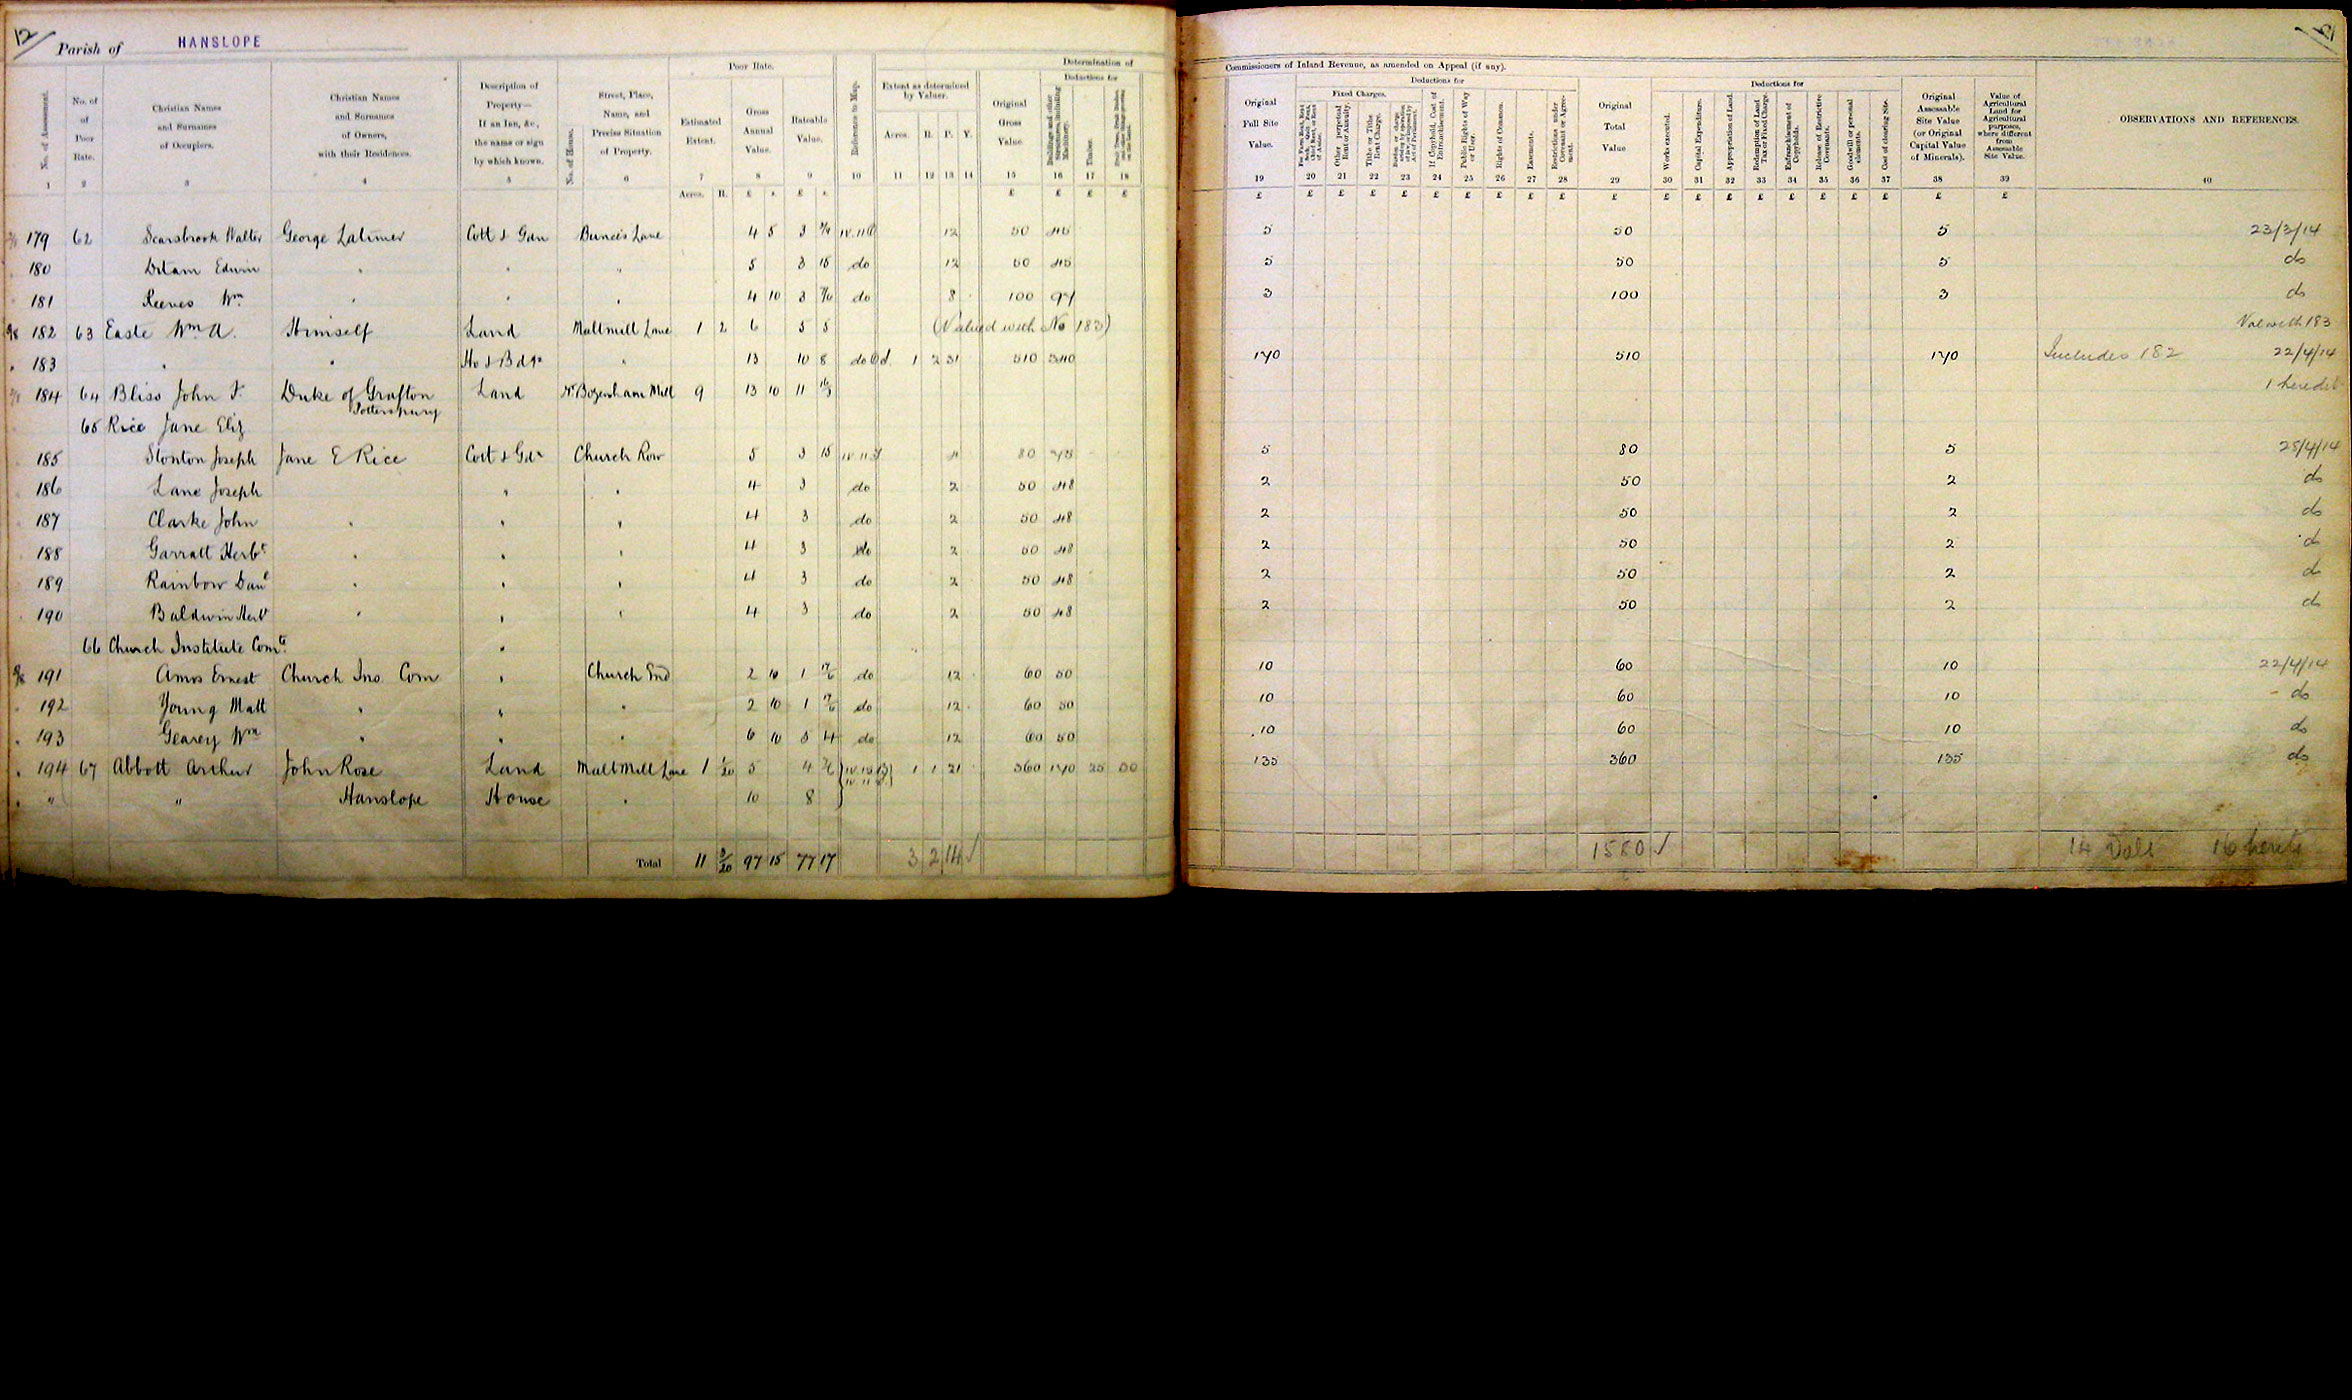 12
Parish of HANSLOPE
Poor Rate.
Determination of
No. of Assessment.
No. of Poor Rate.
Christian Names and Surnames of Occupiers.
Christian Names and Surnames of Owners, with their Residences.
Description of Property— If an Inn, &c., the name or sign by which known.
No. of House.
Street, Place, Name, and Precise Situation of Property.
Estimated Extent.
Gross Annual Value.
Rateable Value.
Reference to Map.
Extent as determined by Valuer.
Acres. R. P. Y.
Original Gross Value.
Deductions for
Buildings and other Structures, including Machinery.
Timber.
1 2 3 4 5 6 7 8 9 10 11 12 13 14 15 16 17 18
Acres. R. £ s. £ s. £ £ £ £
179 62 Scarsbrook Walter George Latimer Cott & Gdn Bunce's Lane 4 5 3 12 50 45
180 Edwin " " " 5 3 15 do 12 50 45
181 Reeves Wm " " " 4 10 3 7/6 do 8 100 97
182 63 Easte Wm A. Himself Land Maltmill Lane 1 2 6 5 5 (Valued with No 183)
183 " " Ho & Bdgs " 13 10 8 do 1 2 31 510 340
184 64 Bliss John T. Duke of Grafton Land Nr Bozenham Mill 9 13 10 11
Potterspury
65 Rice Jane Eliz
185 Stonton Joseph Jane E Rice Cott & Gdn Church Row 5 3 15 4 80 75
186 Lane Joseph " " 4 3 do 2 50 48
187 Clarke John " " " 4 3 do 2 50 48
188 Garratt Herbt " " " 4 3 do 2 50 48
189 Rainbow Danl " " " 4 3 do 2 50 48
190 Baldwin Herbt " " " 4 3 do 2 50 48
66 Church Institute Comte "
191 Amos Ernest Church Ins. Com " Church End 2 10 1 17/6 do 12 60 50
192 Young Matt " " " 2 10 1 17/6 do 12 60 50
193 Gearey Wm " " " 6 10 5 4 do 12 60 50
194 67 Abbott Arthur John Rose Land Malt Mill Lane 1 1/20 5 4 1 1 21 360 170 25 30
" " Hanslope House " 10 8
Total 11 3/20 97 15 77 17 3 2 14 ✓
12
Commissioners of Inland Revenue, as amended on Appeal (if any).
Original Full Site Value.
Deductions for
Fixed Charges.
Fee Farm Rent, Rent Seck, Quit Rent, Chief Rent, or Rent of Assize.
Other perpetual Rent or Annuity.
Tithe or Tithe Rent Charge.
Burden or charge arising by operation of law, or imposed by Act of Parliament.
If Copyhold, Cost of Enfranchisement.
Public Rights of Way or User.
Rights of Common.
Easements.
Restrictions under Covenant or Agreement.
Original Total Value.
Deductions for
Works executed.
Capital Expenditure.
Appropriation of Land.
Redemption of Land Tax or Fixed Charge.
Enfranchisement of Copyholds.
Release of Restrictive Covenants.
Goodwill or personal elements.
Cost of clearing Site.
Original Assessable Site Value (or Original Capital Value of Minerals).
Value of Agricultural Land for Agricultural purposes, where different from Assessable Site Value.
OBSERVATIONS AND REFERENCES.
19 20 21 22 23 24 25 26 27 28 29 30 31 32 33 34 35 36 37 38 39 40
£ £ £ £ £ £ £ £ £ £ £ £ £ £ £ £ £ £ £ £ £
5 50 5 23/3/14
5 50 5 do
3 100 3 do
Val with 183
170 510 170 Includes 182 22/4/14
1 heredit
5 80 5 28/4/14
2 50 2 do
2 50 2 do
2 50 2 do
2 50 2 do
2 50 2 do
10 60 10 22/4/14
10 60 10 do
10 60 10 do
135 360 135 do
1580 ✓ 14 Vals 16 heredts